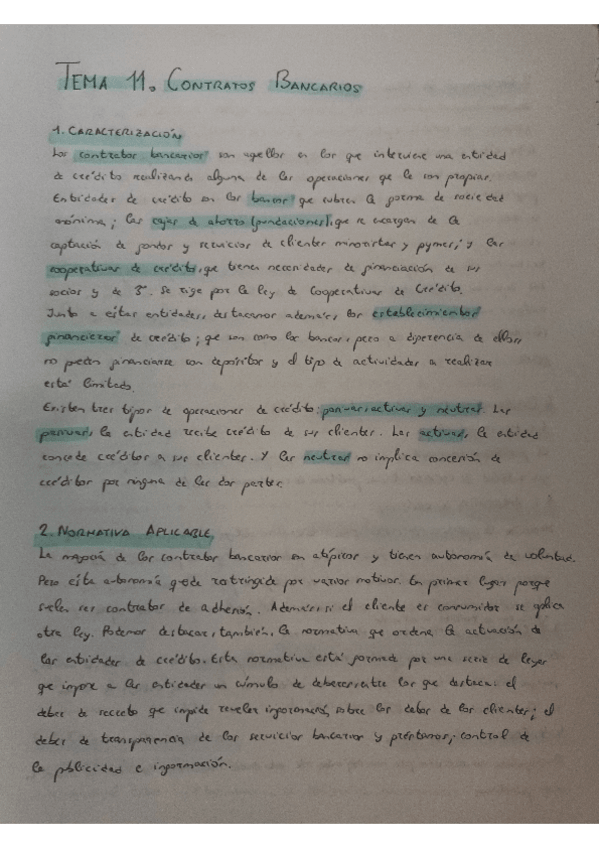 TEMA 11. CONTRATOS BANCARIOS
1. CARACTERIZACIÓN
Los contratos bancarios son aquellos en los que interviene una entidad
de crédito realizando alguna de las operaciones que le son propias.
Entidades de crédito son los bancos que cubren la forma de sociedad
anónima; las cajas de ahorro (fundaciones), que se encargan de la
captación de fondos y servicios de clientes minoristas y pymes; y las
cooperativas de crédito, que tienen necesidades de financiación de sus
socios y de 3º. Se rige por la Ley de Cooperativas de Crédito.
Junto a estas entidades, destacamos además, los establecimientos
financieros de crédito; que son como los bancos, pero a diferencia de ellos
no pueden financiarse con depósitos y el tipo de actividades a realizar
está limitado.
Existen tres tipos de operaciones de crédito: pasivas, activas y neutras. Las
pasivas, la entidad recibe crédito de sus clientes. Las activas, la entidad
concede créditos a sus clientes. Y las neutras no implica concesión de
créditos por ninguna de las dos partes.
2. NORMATIVA APLICABLE
La mayoría de los contratos bancarios son atípicos y tienen autonomía de voluntad.
Pero esta autonomía queda restringida por varios motivos. En primer lugar porque
suelen ser contratos de adhesión. Además si el cliente es consumidor se aplica
otra ley. Podemos destacar, también, la normativa que ordena la actuación de
las entidades de crédito. Esta normativa está formada por una serie de leyes
que impone a las entidades un cúmulo de deberes entre los que destaca: el
deber de secreto que impide revelar información sobre los datos de los clientes; el
deber de transparencia de los servicios bancarios y préstamos; control de
la publicidad e información.